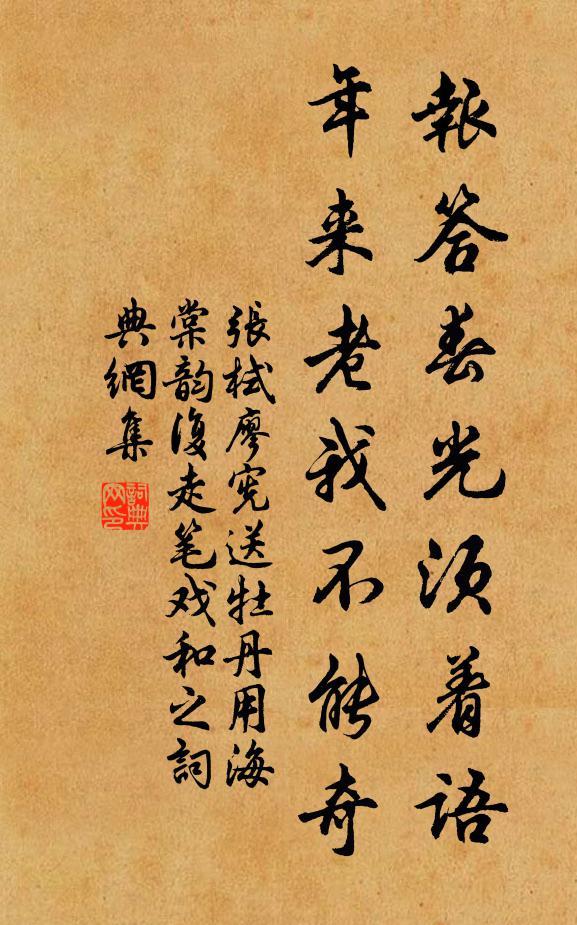 報答春光須着語
年来老我不能奇
張栻廖宪送牡丹用海
棠韵復走笔戏和之詞
典網集
詞典
网印